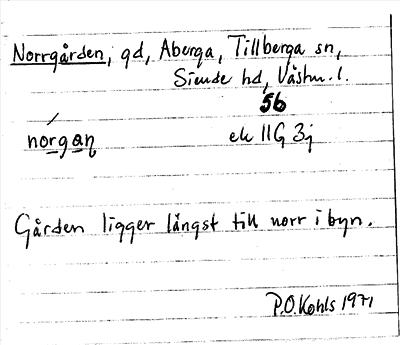 Norrgården, gd, Aberga, Tillberga sn,
Siende hd, Västm. l.
56
norgan ek 11G 3j
Gården ligger längst till norr i byn.
P.O. Kohls 1971